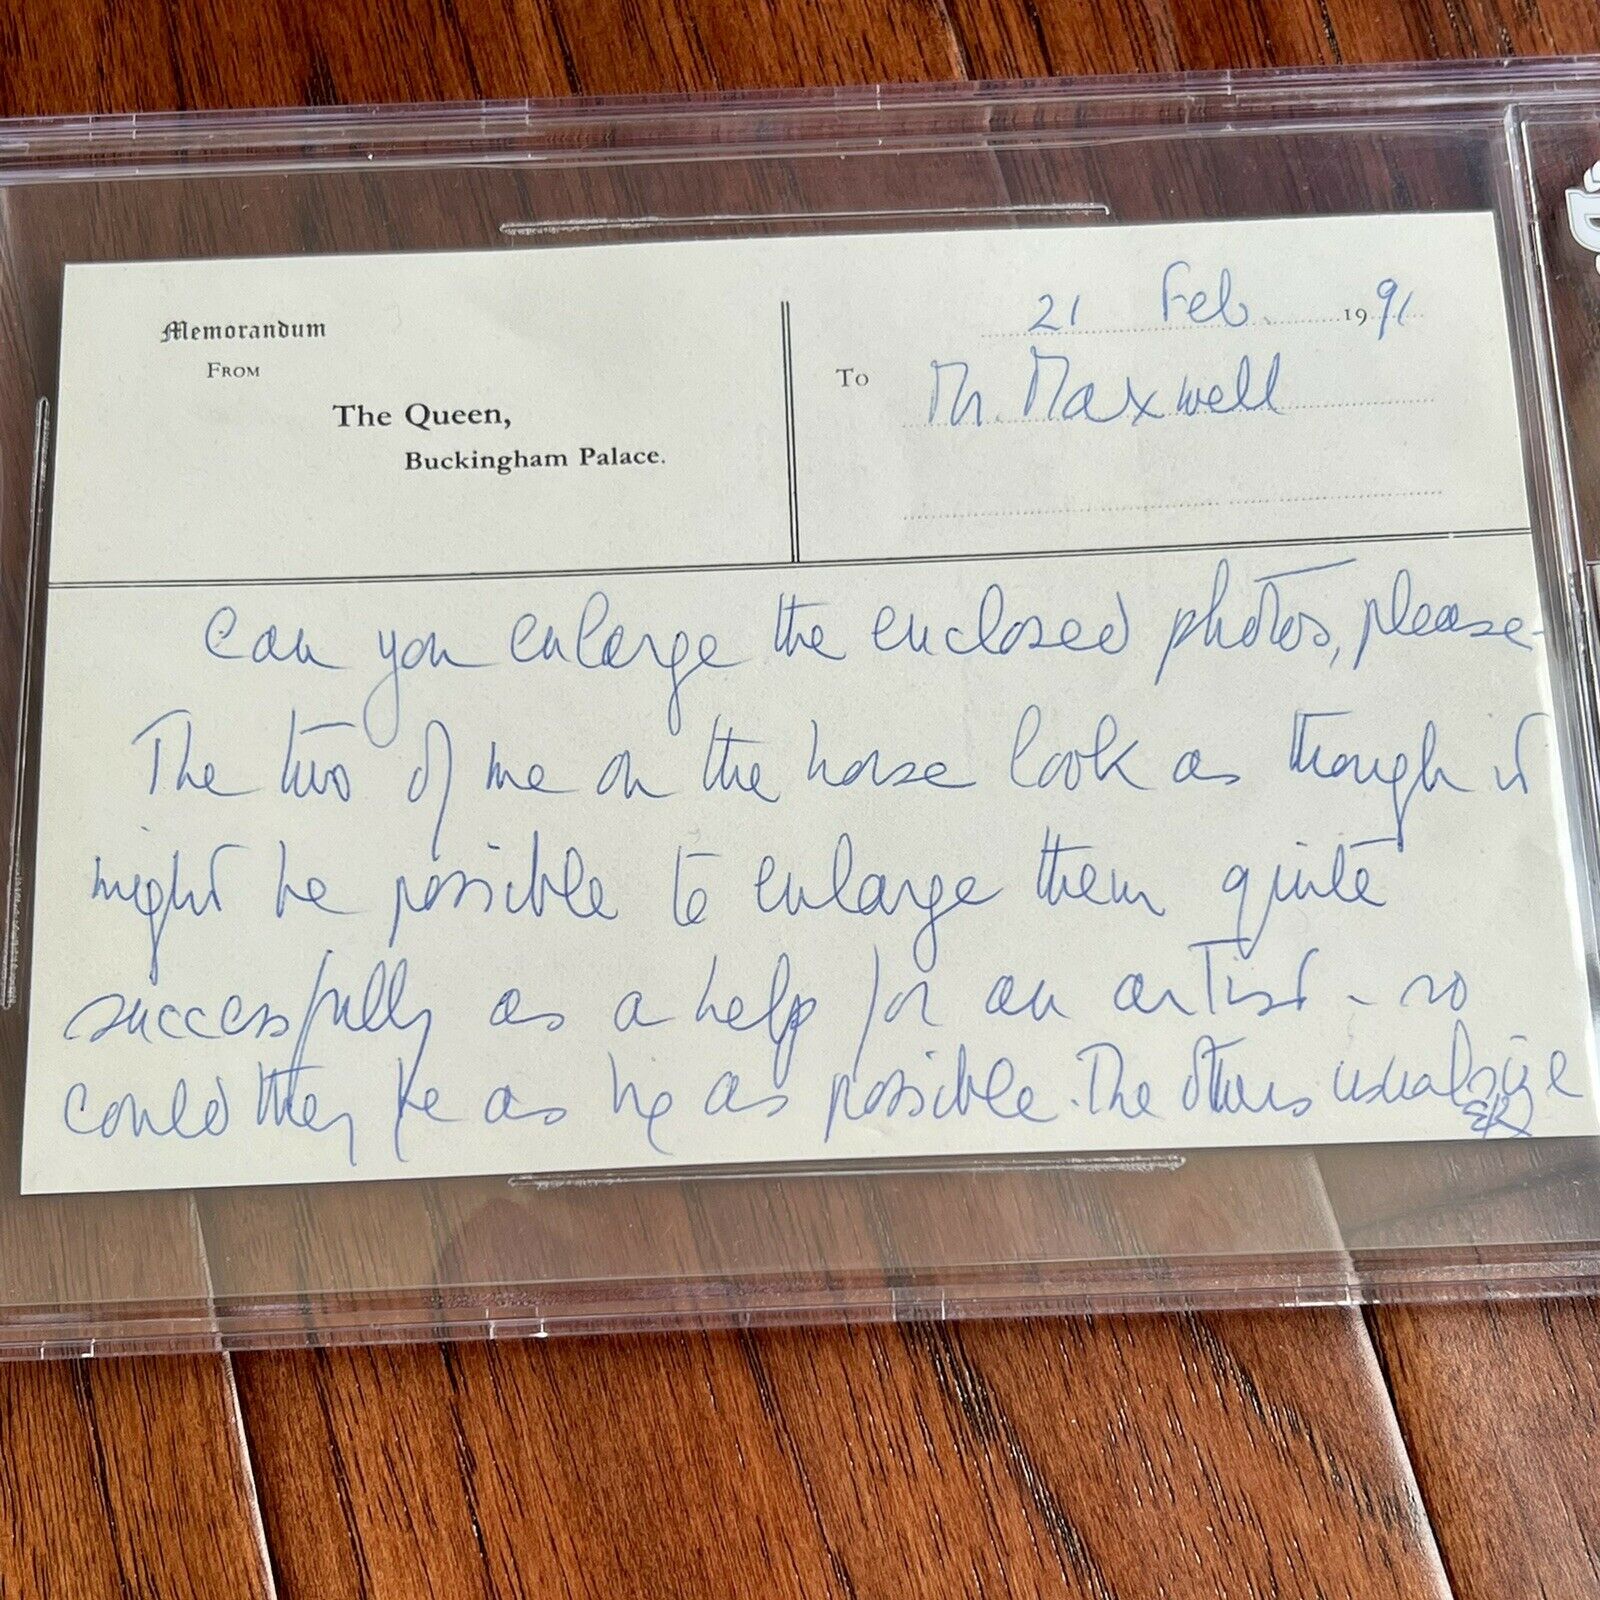 Memorandum
FROM
The Queen,
Buckingham Palace.
21 Feb. 1991
To Mr. Maxwell
Can you enlarge the enclosed photos, please.
The two of me on the horse look as though it
might be possible to enlarge them quite
successfully as a help for an artist - so
could they be as big as possible. The others usual size
ER